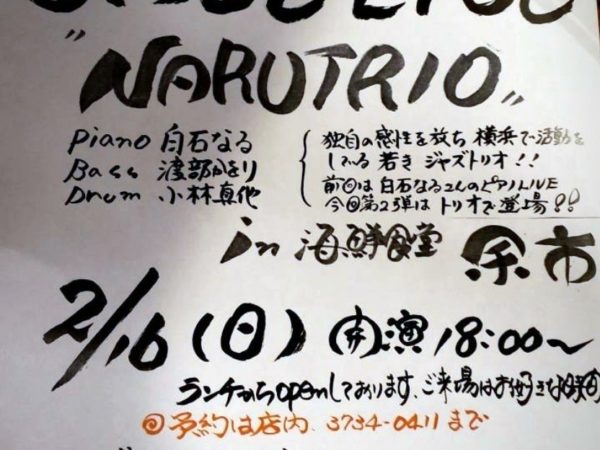 "NARUTRIO"
Piano 白石なる
Bass 渡部かをり
Drum 小林真也
独自の感性を放ち 横浜で活動を
している 若き ジャズトリオ!!
前回は 白石なるさんのピアノLIVE
今回第2弾は トリオで登場!!
in 海鮮食堂 余市
2/16(日) 開演 18:00〜
ランチからopenしております、ご来場はお好きな時間
◎予約は店内、3734-0411 まで